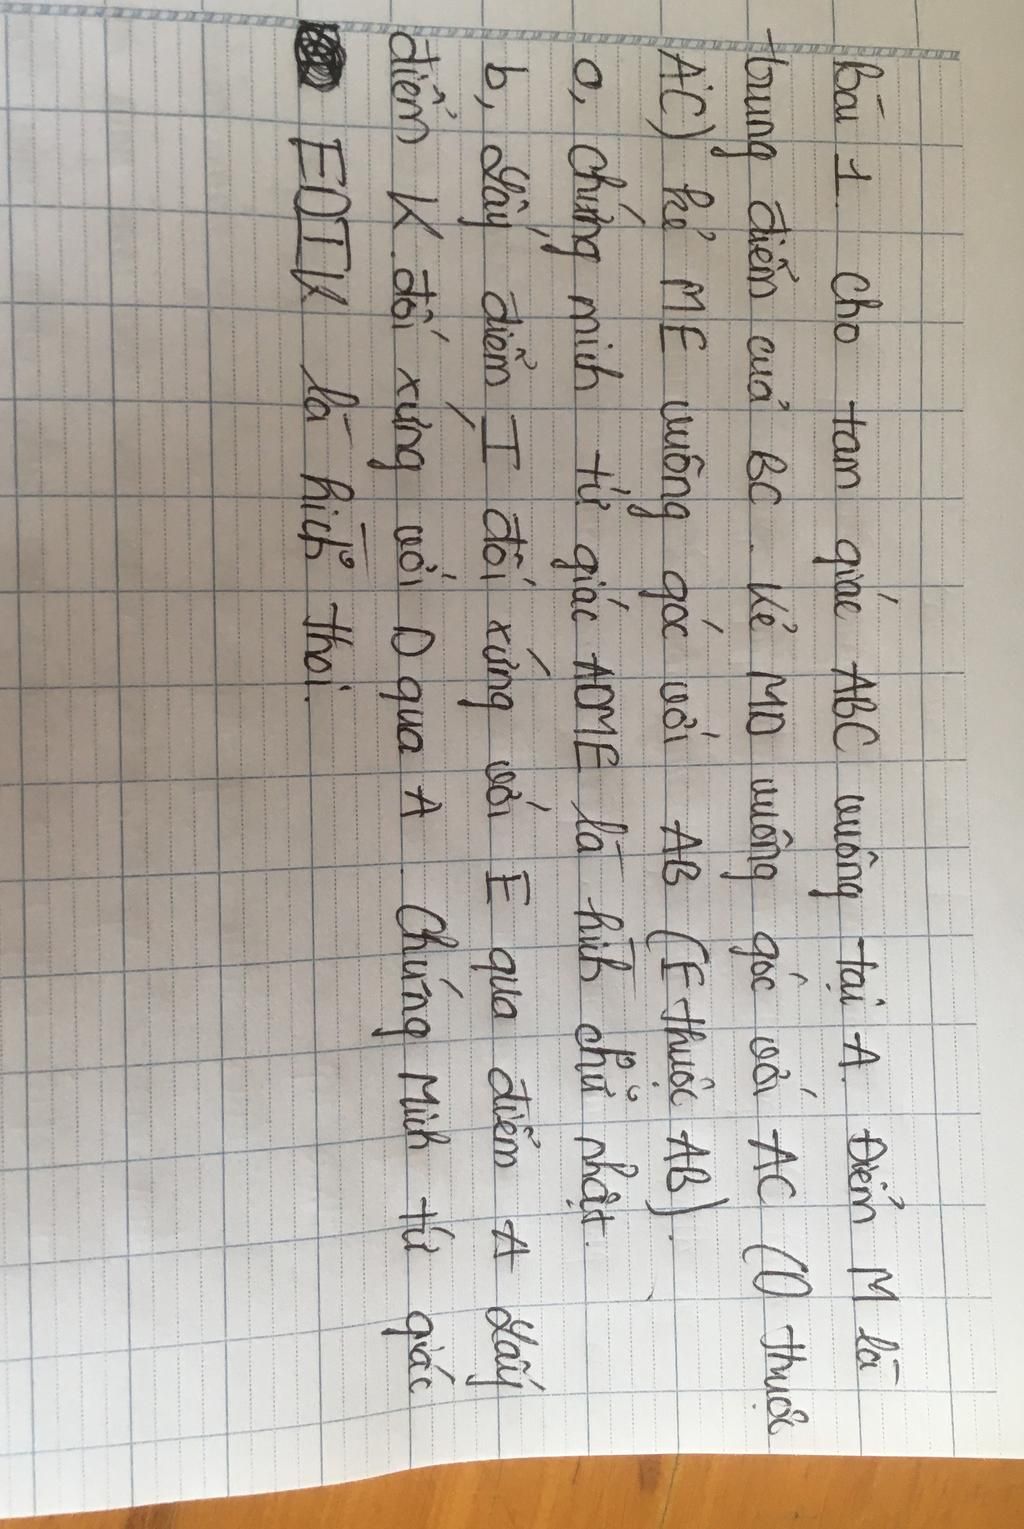 Bài 1. Cho tam giác ABC vuông tại A. Điểm M là
trung điểm của BC. Kẻ MD vuông góc với AC (D thuộc
AC) kẻ ME vuông góc với AB (E thuộc AB).
a, Chứng minh tứ giác ADME là hình chữ nhật.
b, Lấy điểm I đối xứng với E qua điểm A lấy
điểm K đối xứng với D qua A. Chứng Minh tứ giác
EDIK là hình thoi.